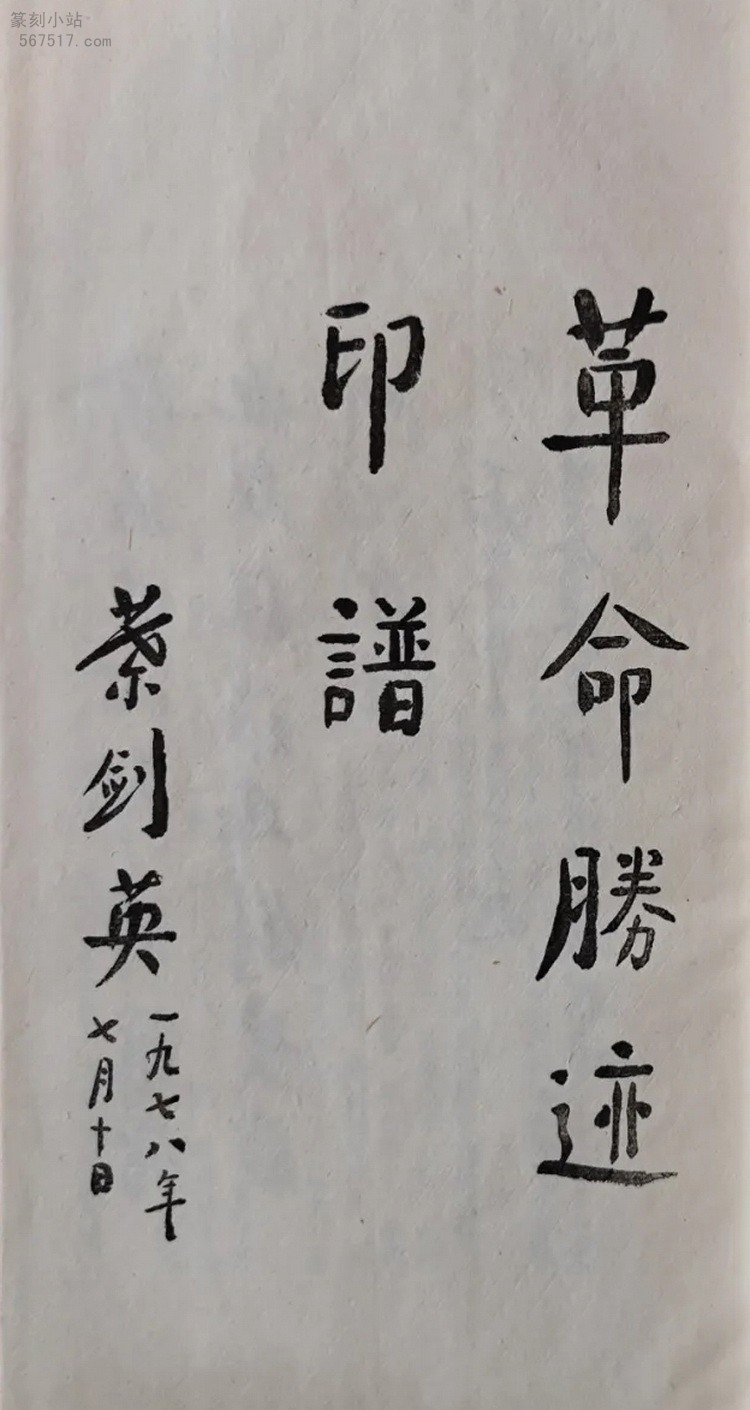 篆刻小站
567517.com
革命勝迹
印譜
葉剑英
一九七八年
七月十日